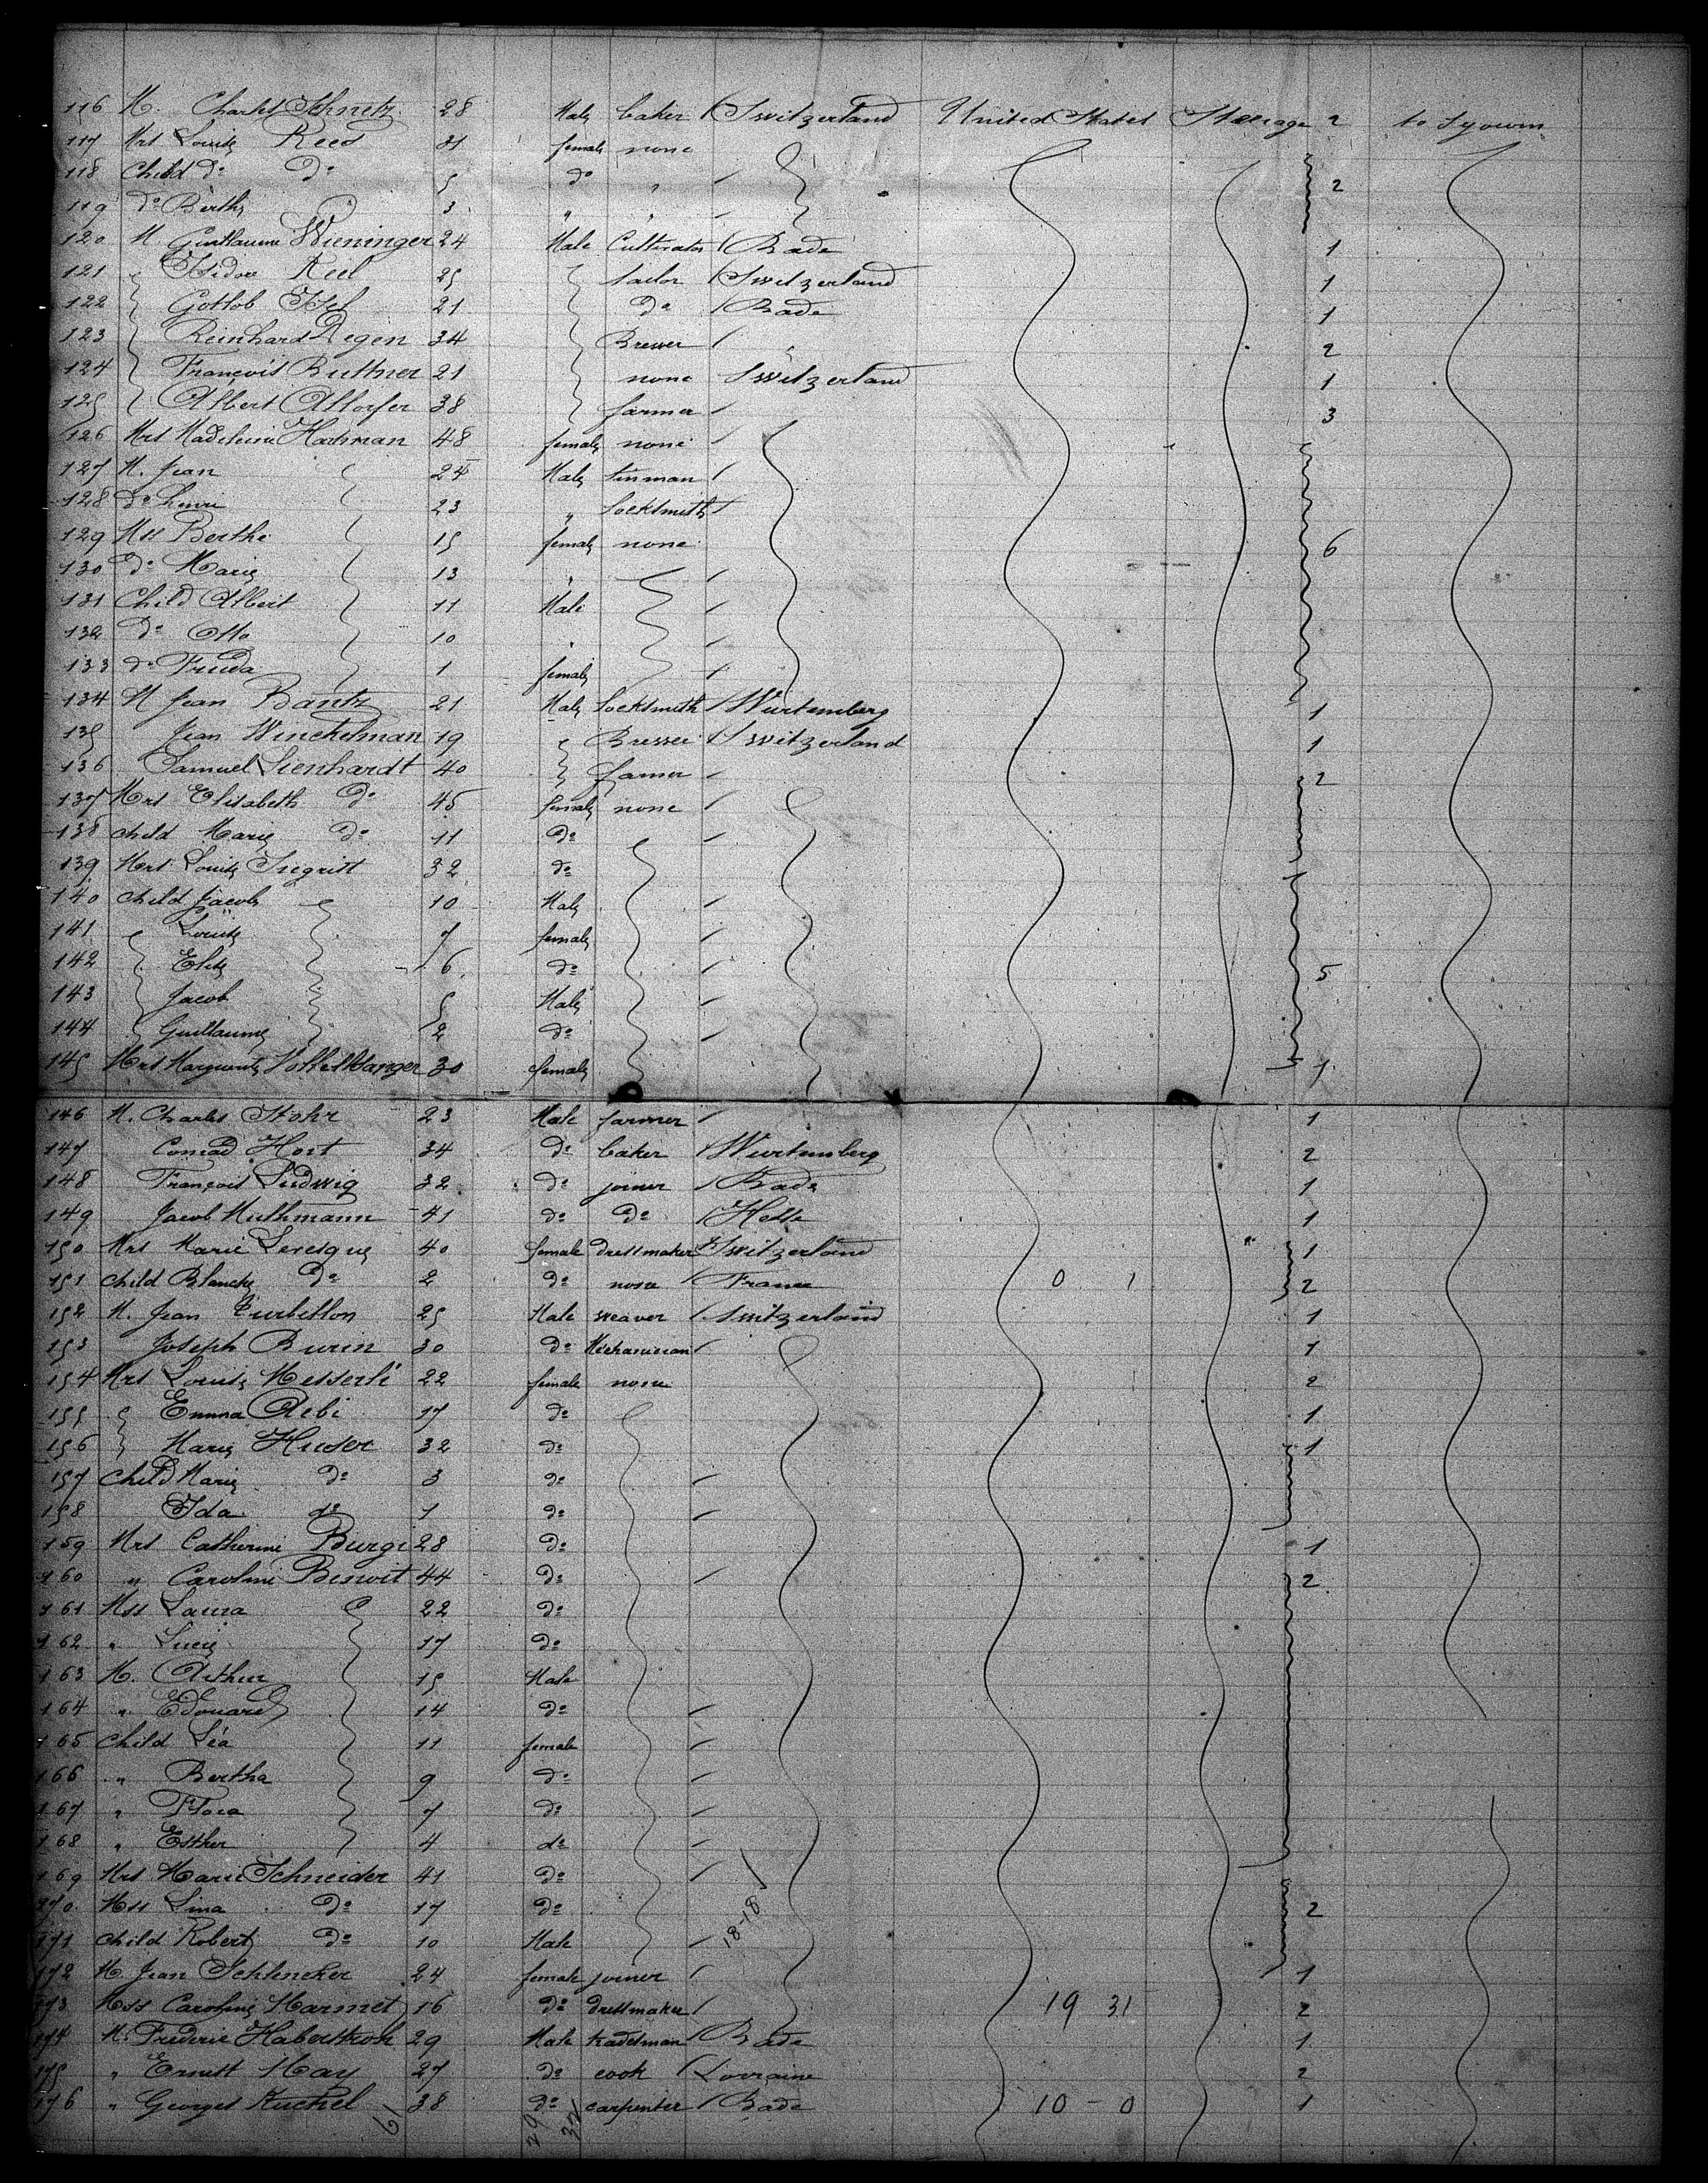 116 M. Charles Schnetz 28 Male baker / Switzerland United States Steerage 2 to sjourn
117 Mrs Louise Reed 31 female none
118 Child do do 5 do " / 2
119 do Berthe 3 " " /
120 M. Guillaume Wieninger 24 Male Cultivator / Bade 1
121 " Isidore Riel 25 tailor / Switzerland 1
122 Gottlob Itel 21 do / Bade 1
123 Reinhard Regen 34 Brewer / " 2
124 François Buttner 21 none Switzerland 1
125 Albert Altorfer 38 farmer / 3
126 Mrs Madeleine Hatman 48 female none /
127 M. Jean 24 Male tinman /
128 do henri 23 " Locksmith /
129 Mss Berthe 15 female none 6
130 do Marie 13 " /
131 Child Albert 11 Male /
132 do Otto 10 " /
133 do Frieda 1 female /
134 M Jean Bantz 21 Male Locksmith / Wurtemberg 1
135 Jean Winckelman 19 Brewer / Switzerland 1
136 Samuel Lienhardt 40 farmer / 2
137 Mrs Elisabeth do 45 female none /
138 child Marie do 11 do /
139 Mrs Louise Siegrist 32 do
140 child Jacob 10 Male /
141 Louise 7 female /
142 Elise 6 do / 5
143 Jacob 5 Male /
144 Guillaume 2 do /
145 Mrs Marguerite 30 female 1
146 M. Charles Stohr 23 Male farmer / 1
147 Conrad Host 34 do baker / Wurtemberg 2
148 François Ludwig 32 do joiner / Bade 1
149 Jacob Muthmann 41 do do / Hesse 1
150 Mrs Marie Leresque 40 female dressmaker / Switzerland 1
151 child Blanche do 2 do none / France 0 1 2
152 M. Jean Turbillon 25 Male weaver / Switzerland 1
153 Joseph Burin 30 do Mechanician / 1
154 Mrs Louise Messerli 22 female none 2
155 Emma Aebi 17 do 1
156 Marie Huser 32 do 1
157 Child Marie do 3 do /
158 Ida do 1 do /
159 Mrs Catherine Burgi 28 do 1
160 " Caroline Benoit 44 do / 2
161 Mss Laura 22 do
162 " Lucie 17 do
163 M. Arthur 15 Male
164 " Edouard 14 do /
165 Child Léa 11 female /
166 " Bertha 9 do /
167 " Flora 7 do /
168 " Esther 4 do /
169 Mrs Marie Schneider 41 do /
170 Mss Lina do 17 do 2
171 child Robert do 10 Male / 18-18
172 M. Jean Schlencker 24 female joiner / 1
173 Mss Caroline Harmet 16 do dressmaker / 19 31 2
174 M. Frederic Haberstroh 29 Male tradesman / Bade 1
175 " Ernest May 27 do cook / Lorraine 2
176 " Georges Kuchel 38 do carpenter / Bade 10 - 0 1
61 29 32